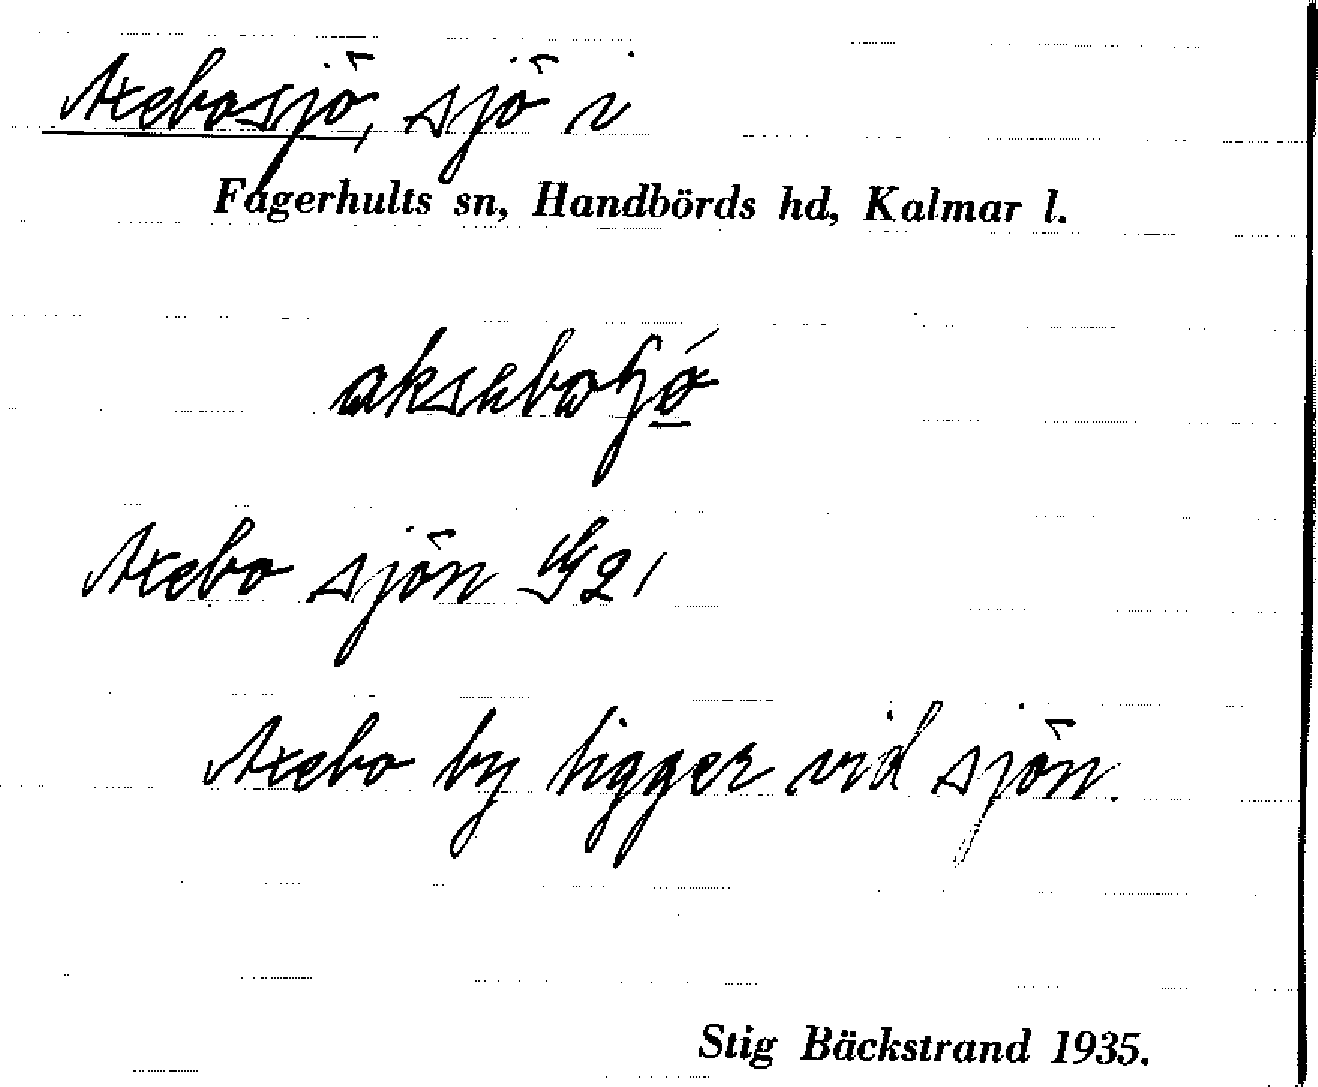 Axebosjö, sjö i
Fagerhults sn, Handbörds hd, Kalmar l.
Axebo sjön
Axebo by ligger vid sjön.
Stig Bäckstrand 1935.